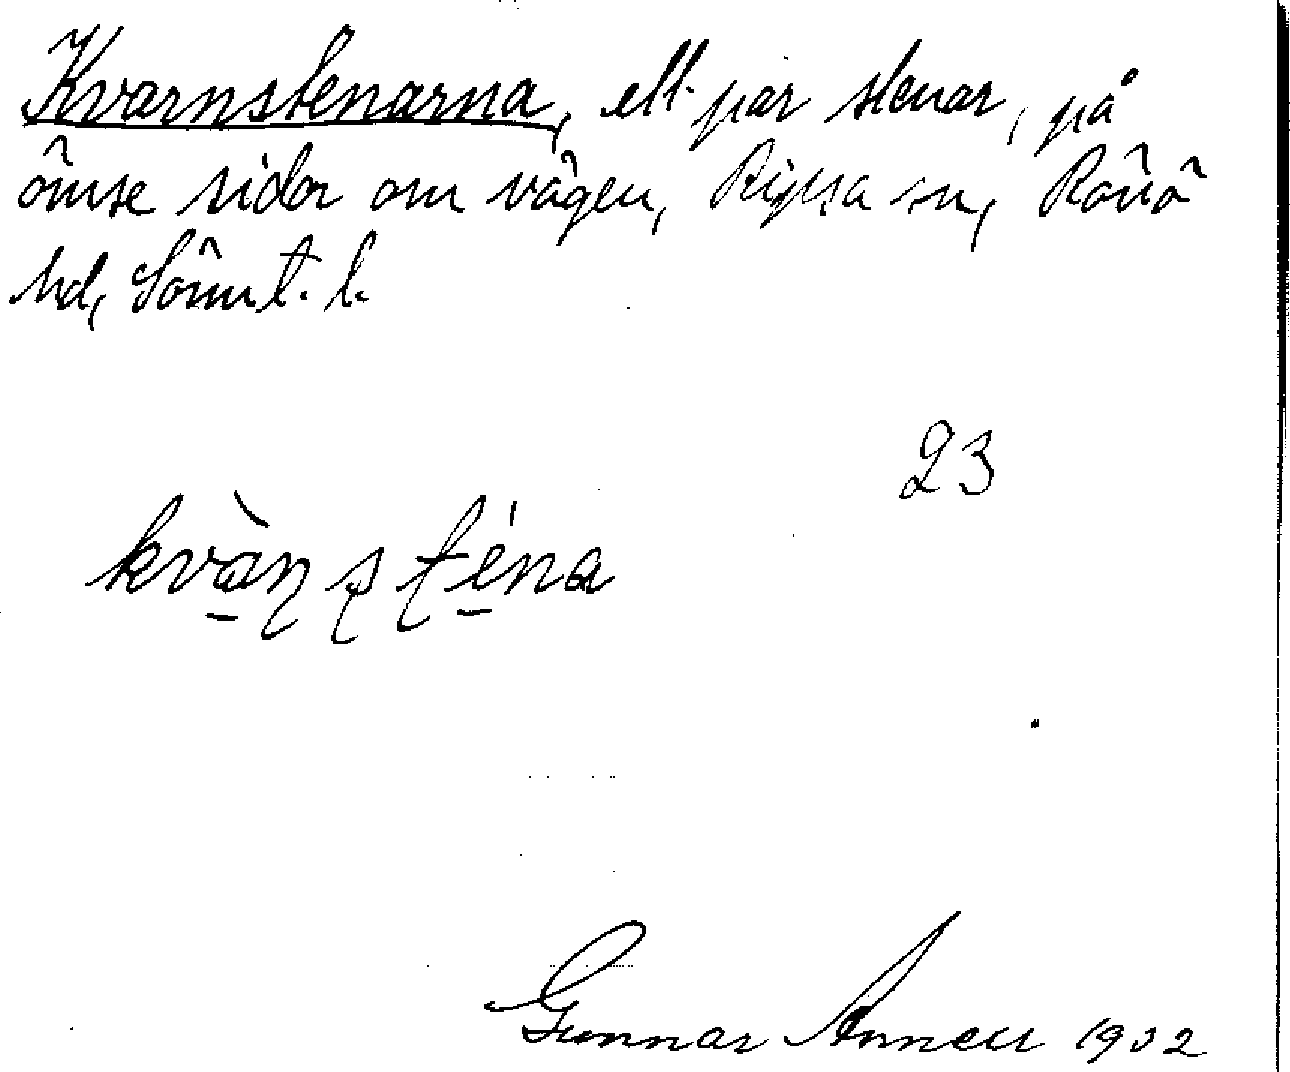 Kvarnstenarna, ett par stenar, på
ömse sidor om vägen, Ripsa sn, Rönö
hd, Sörml. l.
23
kvà̱ṇ ṣ ṭé̱na
Gunnar Annell 1932